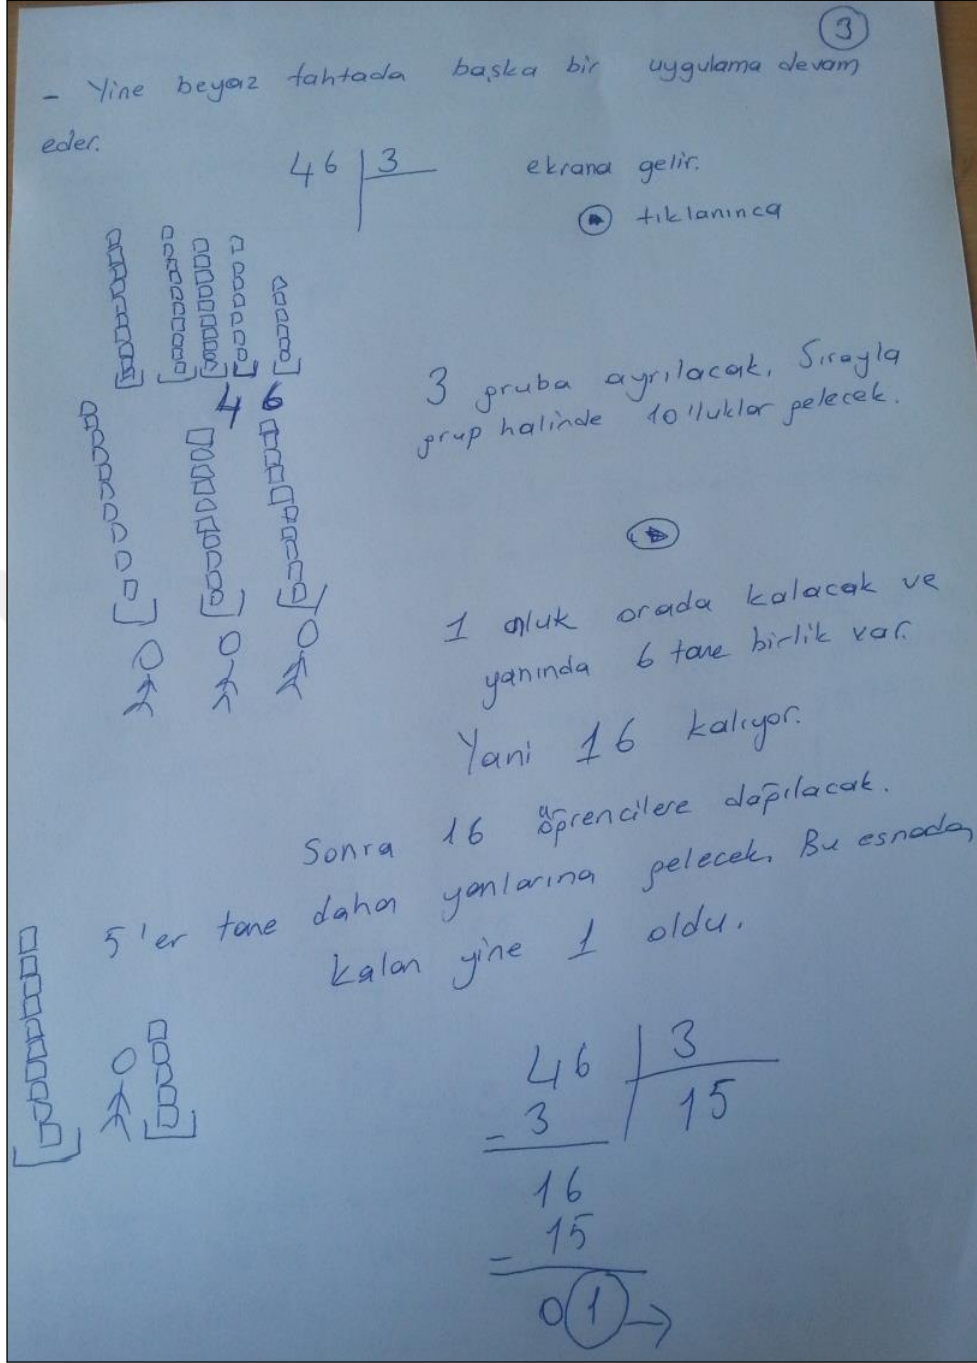 3
- Yine beyaz tahtada başka bir uygulama devam
eder.
46 | 3 ekrana gelir.
tıklanınca
4 6
3 gruba ayrılacak. Sırayla
grup halinde 10'luklar gelecek.
1 onluk orada kalacak ve
yanında 6 tane birlik var.
Yani 16 kalıyor.
Sonra 16 öğrencilere dağılacak.
5'er tane daha yanlarına gelecek. Bu esnada
kalan yine 1 oldu.
46 | 3
- 3 15
16
- 15
0 1 →